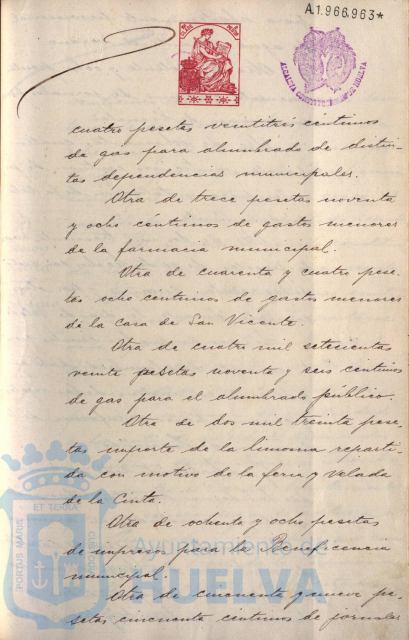 A.1.966.963*
ALCALDIA CONSTITUCIONAL DE HUELVA
cuatro pesetas veintitrés céntimos
de gas para alumbrado de distin-
tas dependencias municipales.
Otra de trece pesetas noventa
y ocho céntimos de gastos menores
de la farmacia municipal.
Otra de cuarenta y cuatro pese-
tas ocho céntimos de gastos menores
de la Casa de San Vicente.
Otra de cuatro mil setecientas
veinte pesetas noventa y seis céntimos
de gas para el alumbrado público.
Otra de dos mil treinta pese-
tas importe de la limosna reparti-
da con motivo de la feria y Velada
de la Cinta.
Otra de ochenta y ocho pesetas
de impresos para la Beneficencia
municipal.
Otra de cincuenta y nueve pe-
setas cincuenta céntimos de jornales
PORTUS MARIS ET TERRAE CUSTODIA
Ayuntamiento de
HUELVA